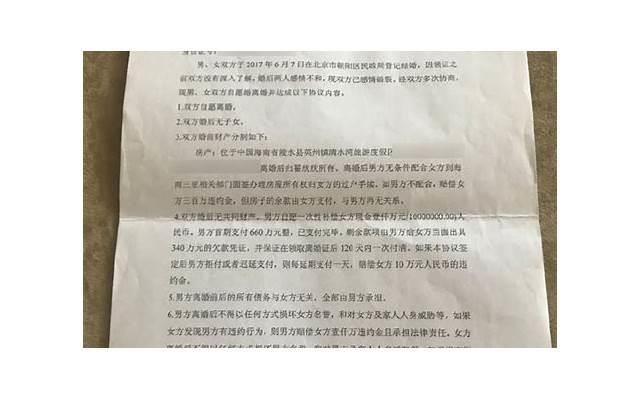 男、女双方于 2017 年 6 月 7 日在北京市朝阳区民政局登记结婚，因领证之
前双方没有深入了解，婚后两人感情不和，现双方已感情破裂，经双方多次协商，
现男、女双方自愿离婚并达成以下协议内容。
1.双方自愿离婚。
2.双方婚后无子女。
3.双方婚前财产分割如下：
房产：位于中国海南省陵水县英州镇清水湾旅游度假
离婚后归翟欣欣所有。离婚后男方无条件配合女方到海
南三亚相关部门面签办理房屋所有权归女方的过户手续。如男方不配合，赔偿女
方三百万违约金，但房子的余款由女方支付，与男方再无关系。
4.双方婚后无共同财产。男方自愿一次性补偿女方现金壹仟万元(10000000.00)人
民币。男方首期支付 660 万元整，已支付完毕。剩余款项由男方给女方当面出具
340 万元的欠款凭证，并保证在领取离婚证后 120 天内一次付清。如果本协议签
定后男方拒付或者迟延支付，则每延期支付一天，赔偿女方 10 万元人民币的违
约金。
5.男方离婚前后的所有债务与女方无关，全部由男方承担。
6.男方离婚后不得以任何方式损坏女方名誉，和对女方及家人人身威胁等，如果
女方发现男方有违约行为，则男方赔偿女方壹仟万违约金且承担法律责任。女方